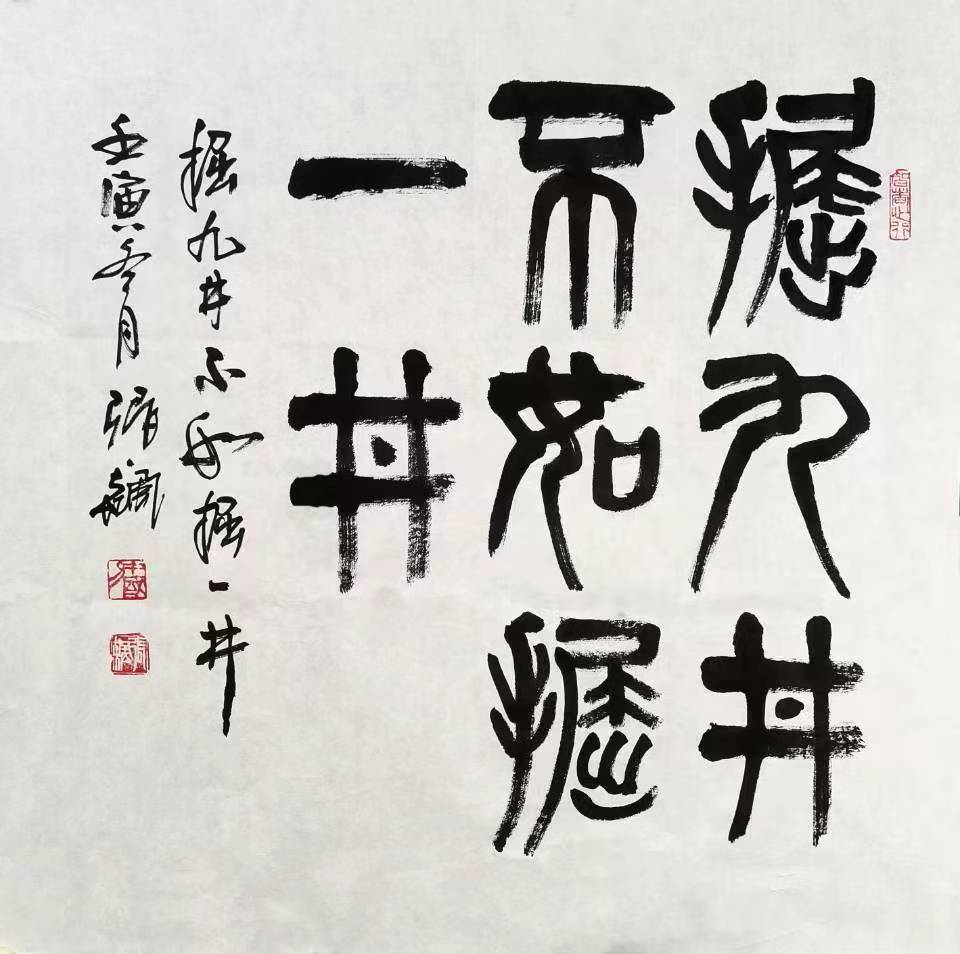 掘九井
不如掘
一井
掘九井不如掘一井
壬寅冬月张